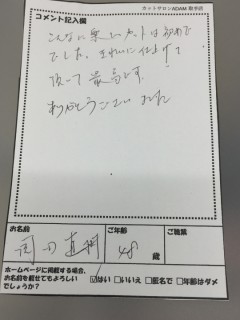 カットサロンADAM 駒井沢
コメント記入欄
こんなに楽しいカットは初めて
でした。きれいに仕上げて
頂いて最高です。
ありがとうございました
お名前
ご年齢
ご職業
48 歳
ホームページに掲載する場合、
お名前を載せてもよろしい
でしょうか?
☑はい □いいえ □匿名で □年齢はダメ